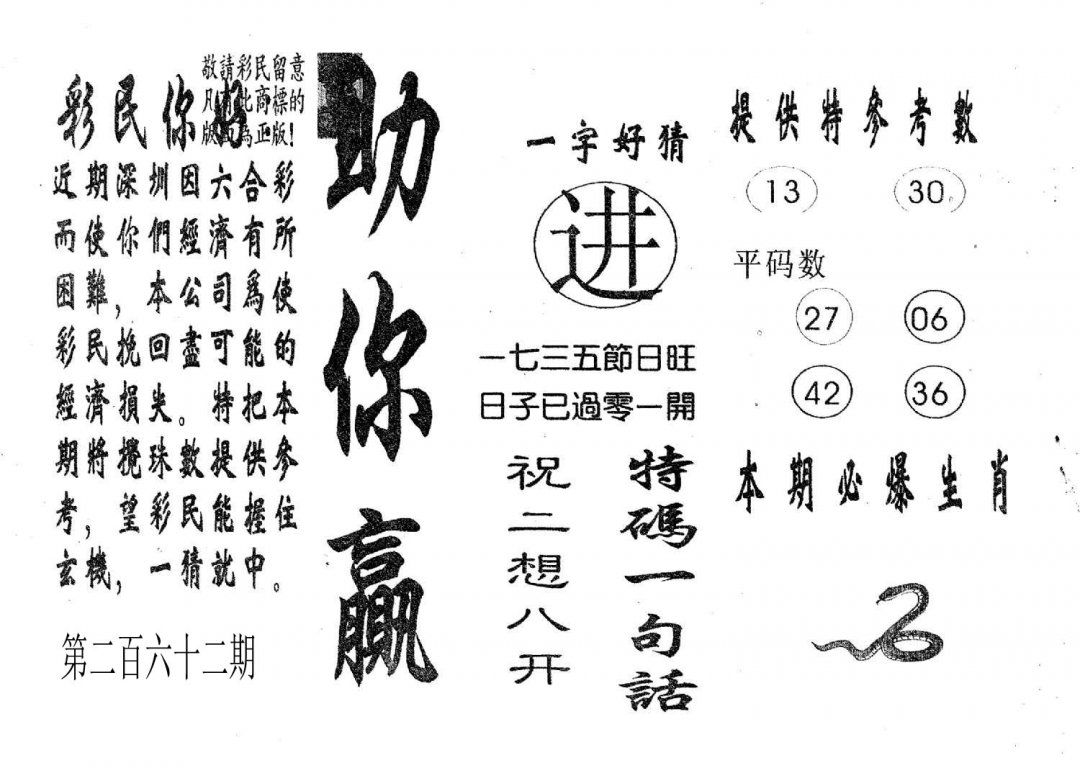 敬請彩民留意
凡有此商標的
版面為正版!
彩民你好
近期深圳因六合彩
而使你們經濟有所
困難，本公司爲使
彩民挽回盡可能的
經濟損失。特把本
期將攪珠數提供參
考，望彩民能握住
玄機，一猜就中。
第二百六十二期
助你贏
一字好猜
进
一七三五節日旺
日子已過零一開
特碼一句話
祝二想八开
提供特參考數
13 30
平码数
27 06
42 36
本期必爆生肖